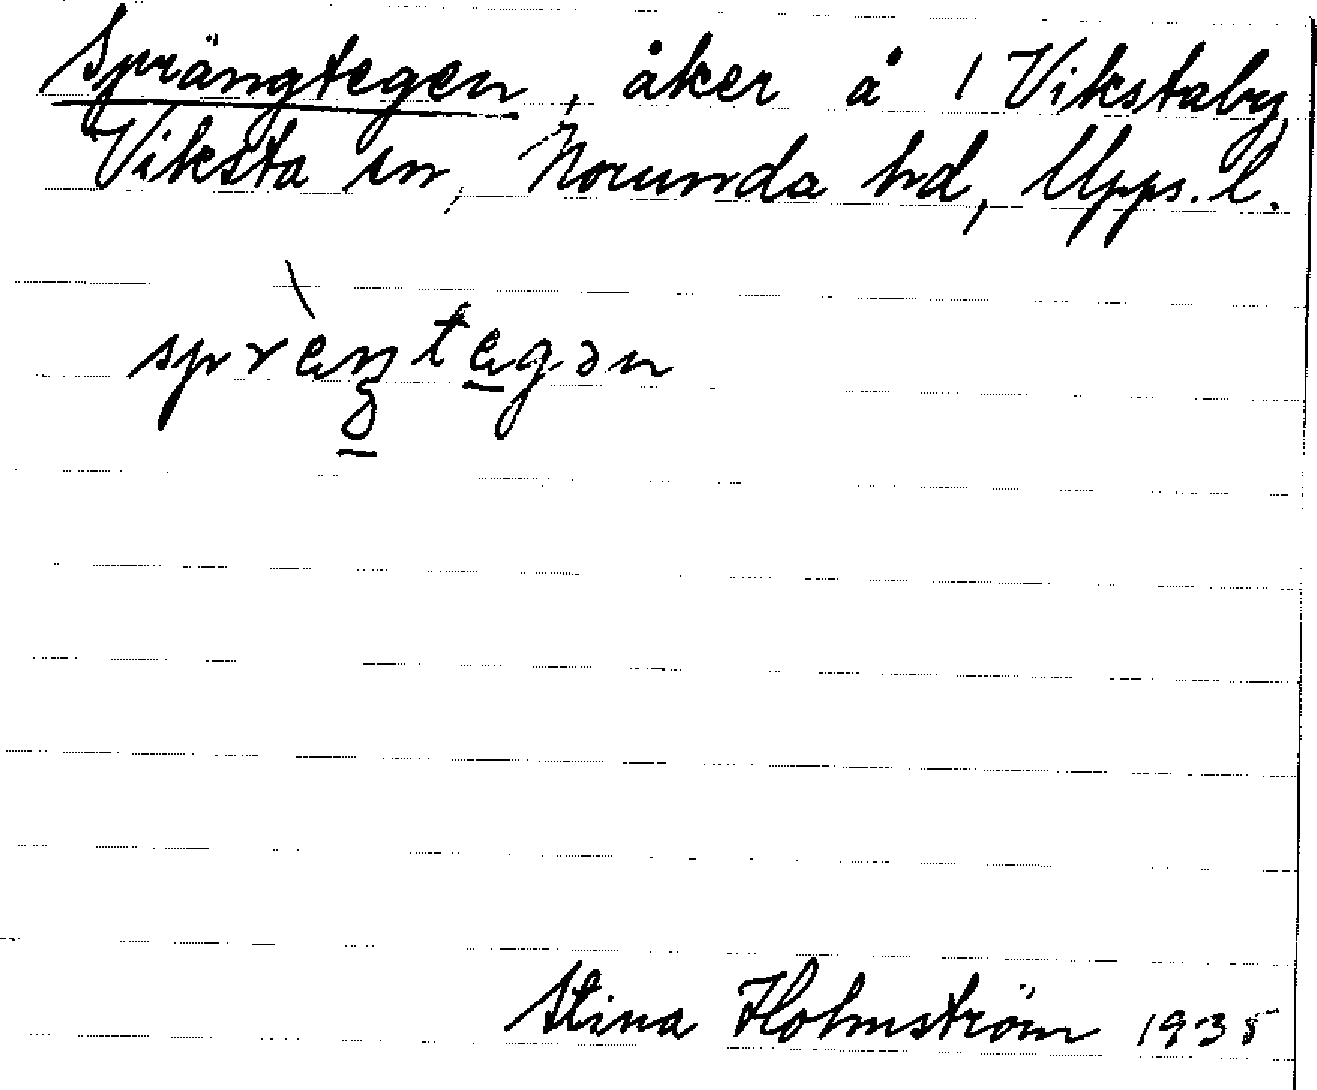 Sprängtegen, åker å 1 Vikstaby,
Viksta sn, Norunda hd, Upps. l.
sprèŋtegən
Stina Holmström 1935